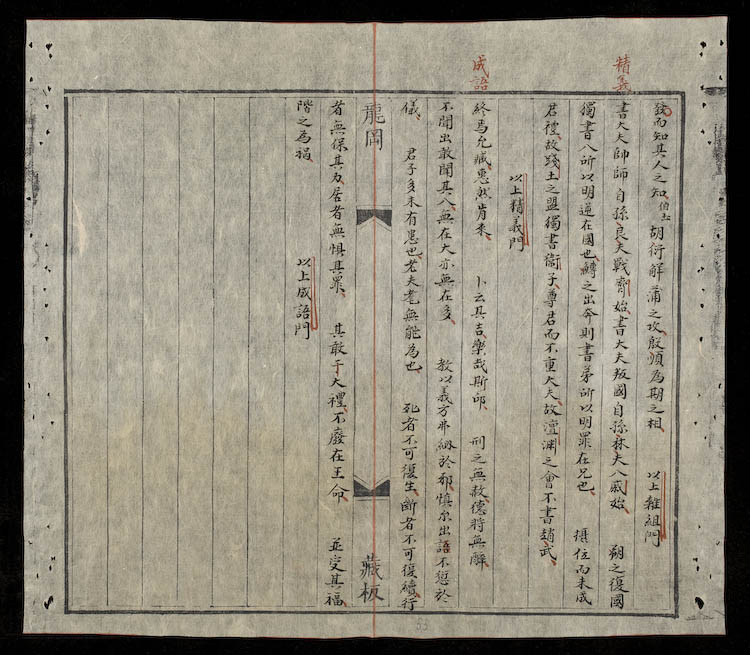 精義
成語
發而知其人之知伯玉 胡衍解蒲之攻殷順為期之相 以上雜組門
書大夫帥師自孫良夫戰齊始書大夫叛國自孫林夫入戚始 朔之復國
獨書入所以明逆在國也鱄之出奔則書弟所以明罪在兄也 攝位而未成
君禮故踐土之盟獨書衛子尊君而不重大夫故澶淵之會不書趙武
以上精義門
終焉允臧惠然肯來 卜云其吉樂哉斯邱 刑之無赦德將無醉
不聞出敢聞其入無在大亦無在多 教以義方弗納於邪慎尔出語不愆於
儀 君子多未有患也老夫耄無能為也 死者不可復生斷者不可復續行
龍岡
藏板
者無保其力居者無懼其罪 其敢干大禮不廢在王命 並受其福
階之為禍
以上成語門
53